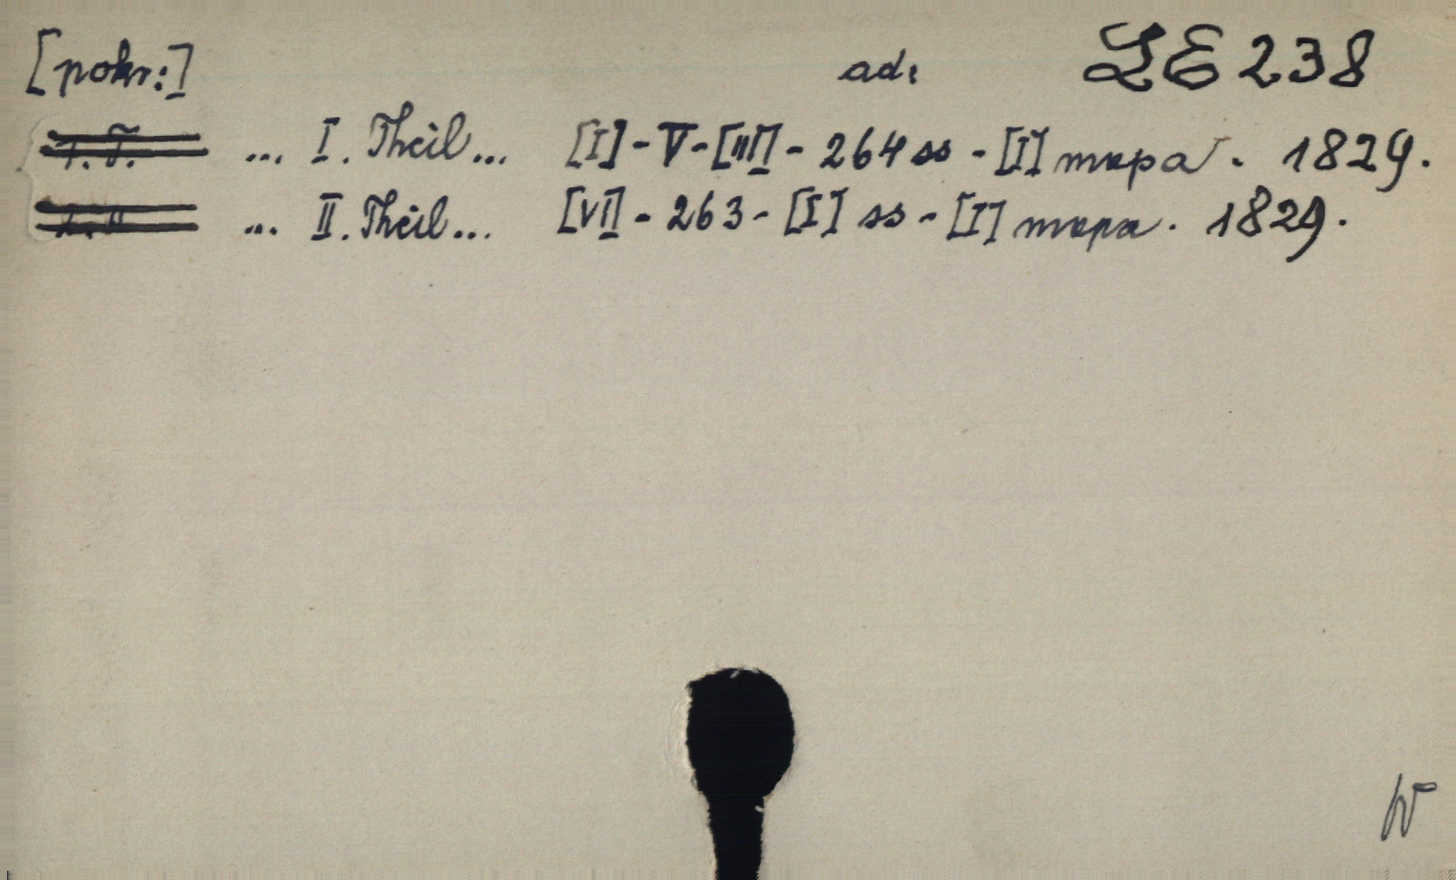 [pokr:] ad: LE 238
... I. Theil... [I] - V - [III] - 264 ss - [I] mapa. 1829.
... II. Theil... [VI] - 263 - [I] ss - [I] mapa. 1829.